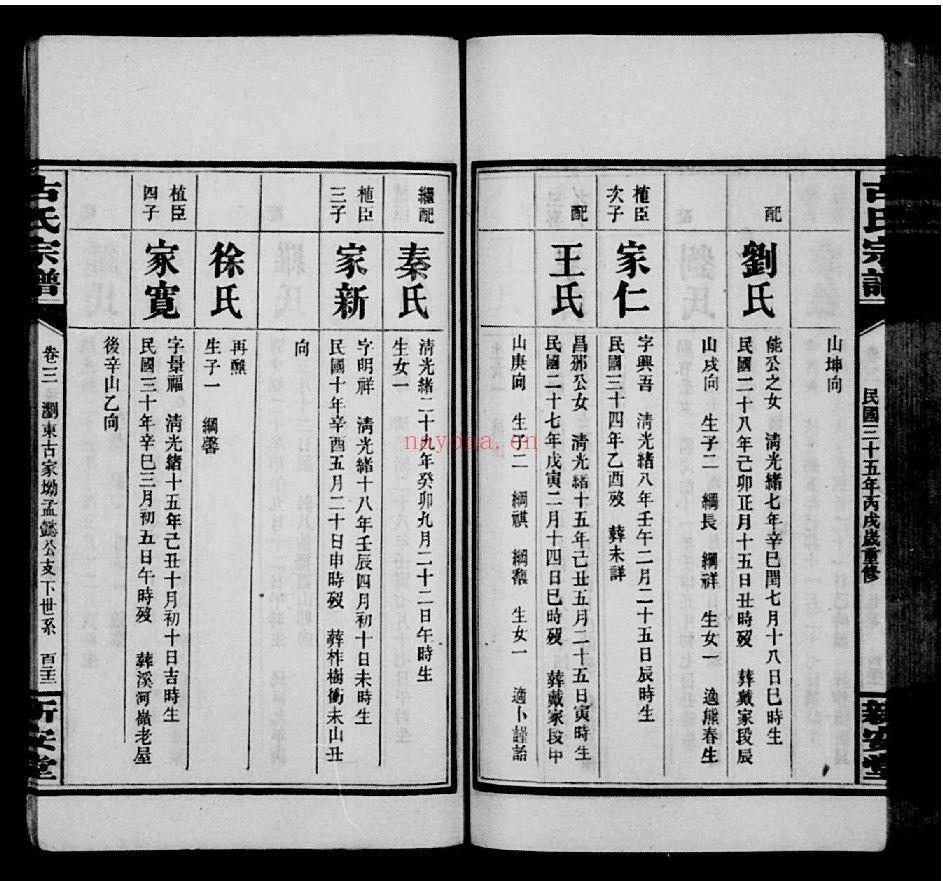 古氏宗譜
民國三十五年丙戌歲重修
新安堂
山坤向
配
劉氏
能公之女 清光緒七年辛巳閏七月十八日巳時生
民國二十八年己卯正月十五日丑時歿 葬戴家段辰
山戌向 生子二 綱長 綱祥 生女一 適熊春生
植臣
次子
家仁
字興吾 清光緒八年壬午二月二十五日辰時生
民國三十四年乙酉歿 葬未詳
配
王氏
昌邠公女 清光緒十五年己丑五月二十五日寅時生
民國二十七年戊寅二月十四日巳時歿 葬戴家段甲
山庚向 生子二 綱祺 綱馥 生女一 適卜謹詒
繼配
秦氏
清光緒二十九年癸卯九月二十二日午時生
生女一
植臣
三子
家新
字明祥 清光緒十八年壬辰四月初十日未時生
民國十年辛酉五月二十日申時歿 葬柞樹衝未山丑
向
徐氏
再醮
生子一 綱馨
植臣
四子
家寬
字景福 清光緒十五年己丑十月初十日吉時生
民國三十年辛巳三月初五日午時歿 葬溪河嶺老屋
後辛山乙向
古氏宗譜
卷三 瀏東古家坳孟懿公支下世系
新安堂
nayona.cn